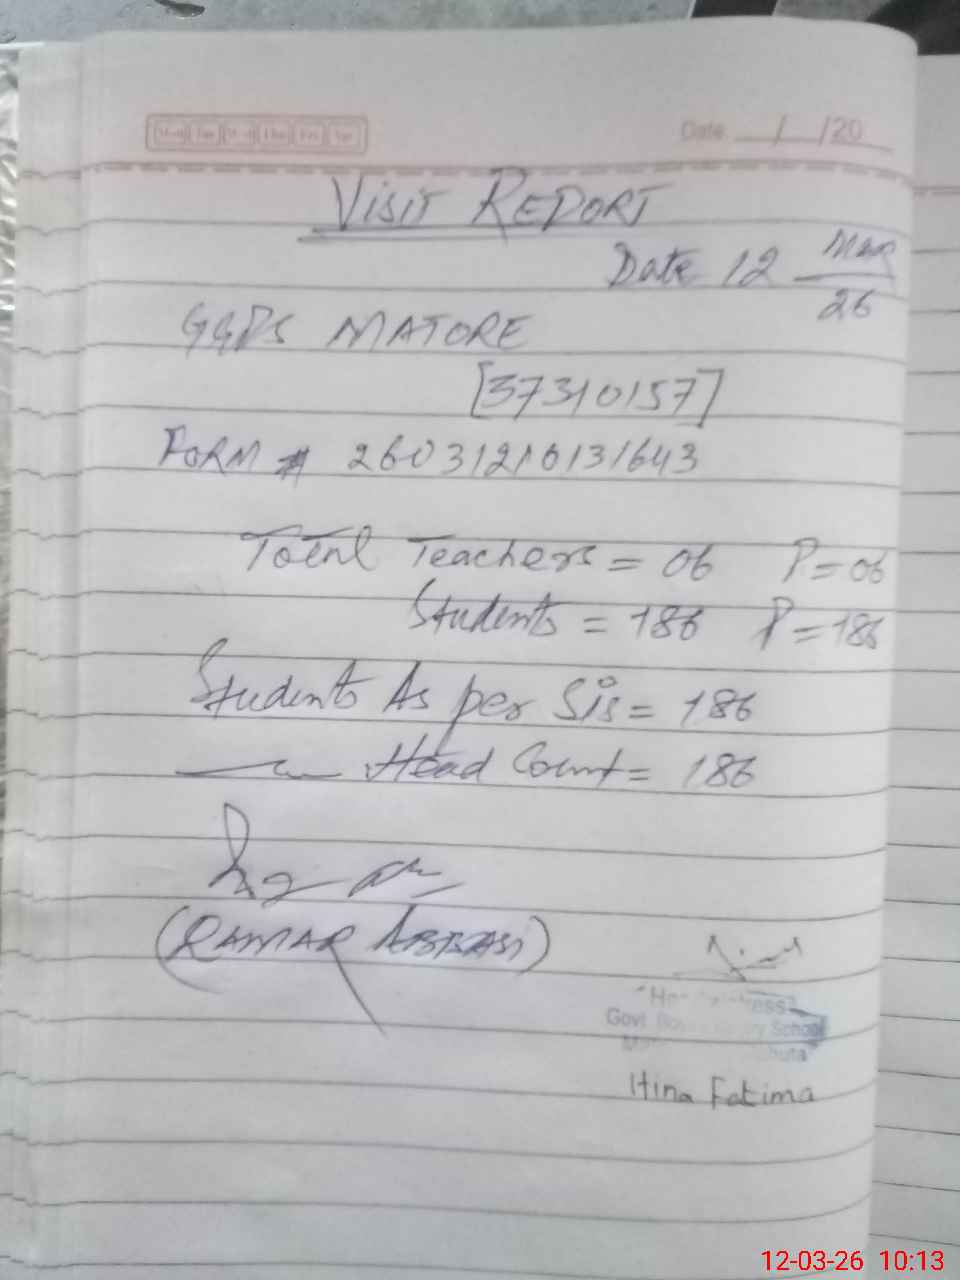 Date / /20
VISIT REPORT
Date 12 Mar
26
GGPS MATORE
[37310157]
FORM # 26031210131643
Total Teachers = 06 P = 06
Students = 186 P = 186
Students As per Sis = 186
Head Count = 186
(QAMAR ABBASI)
Govt School
Hina Fatima
12-03-26 10:13